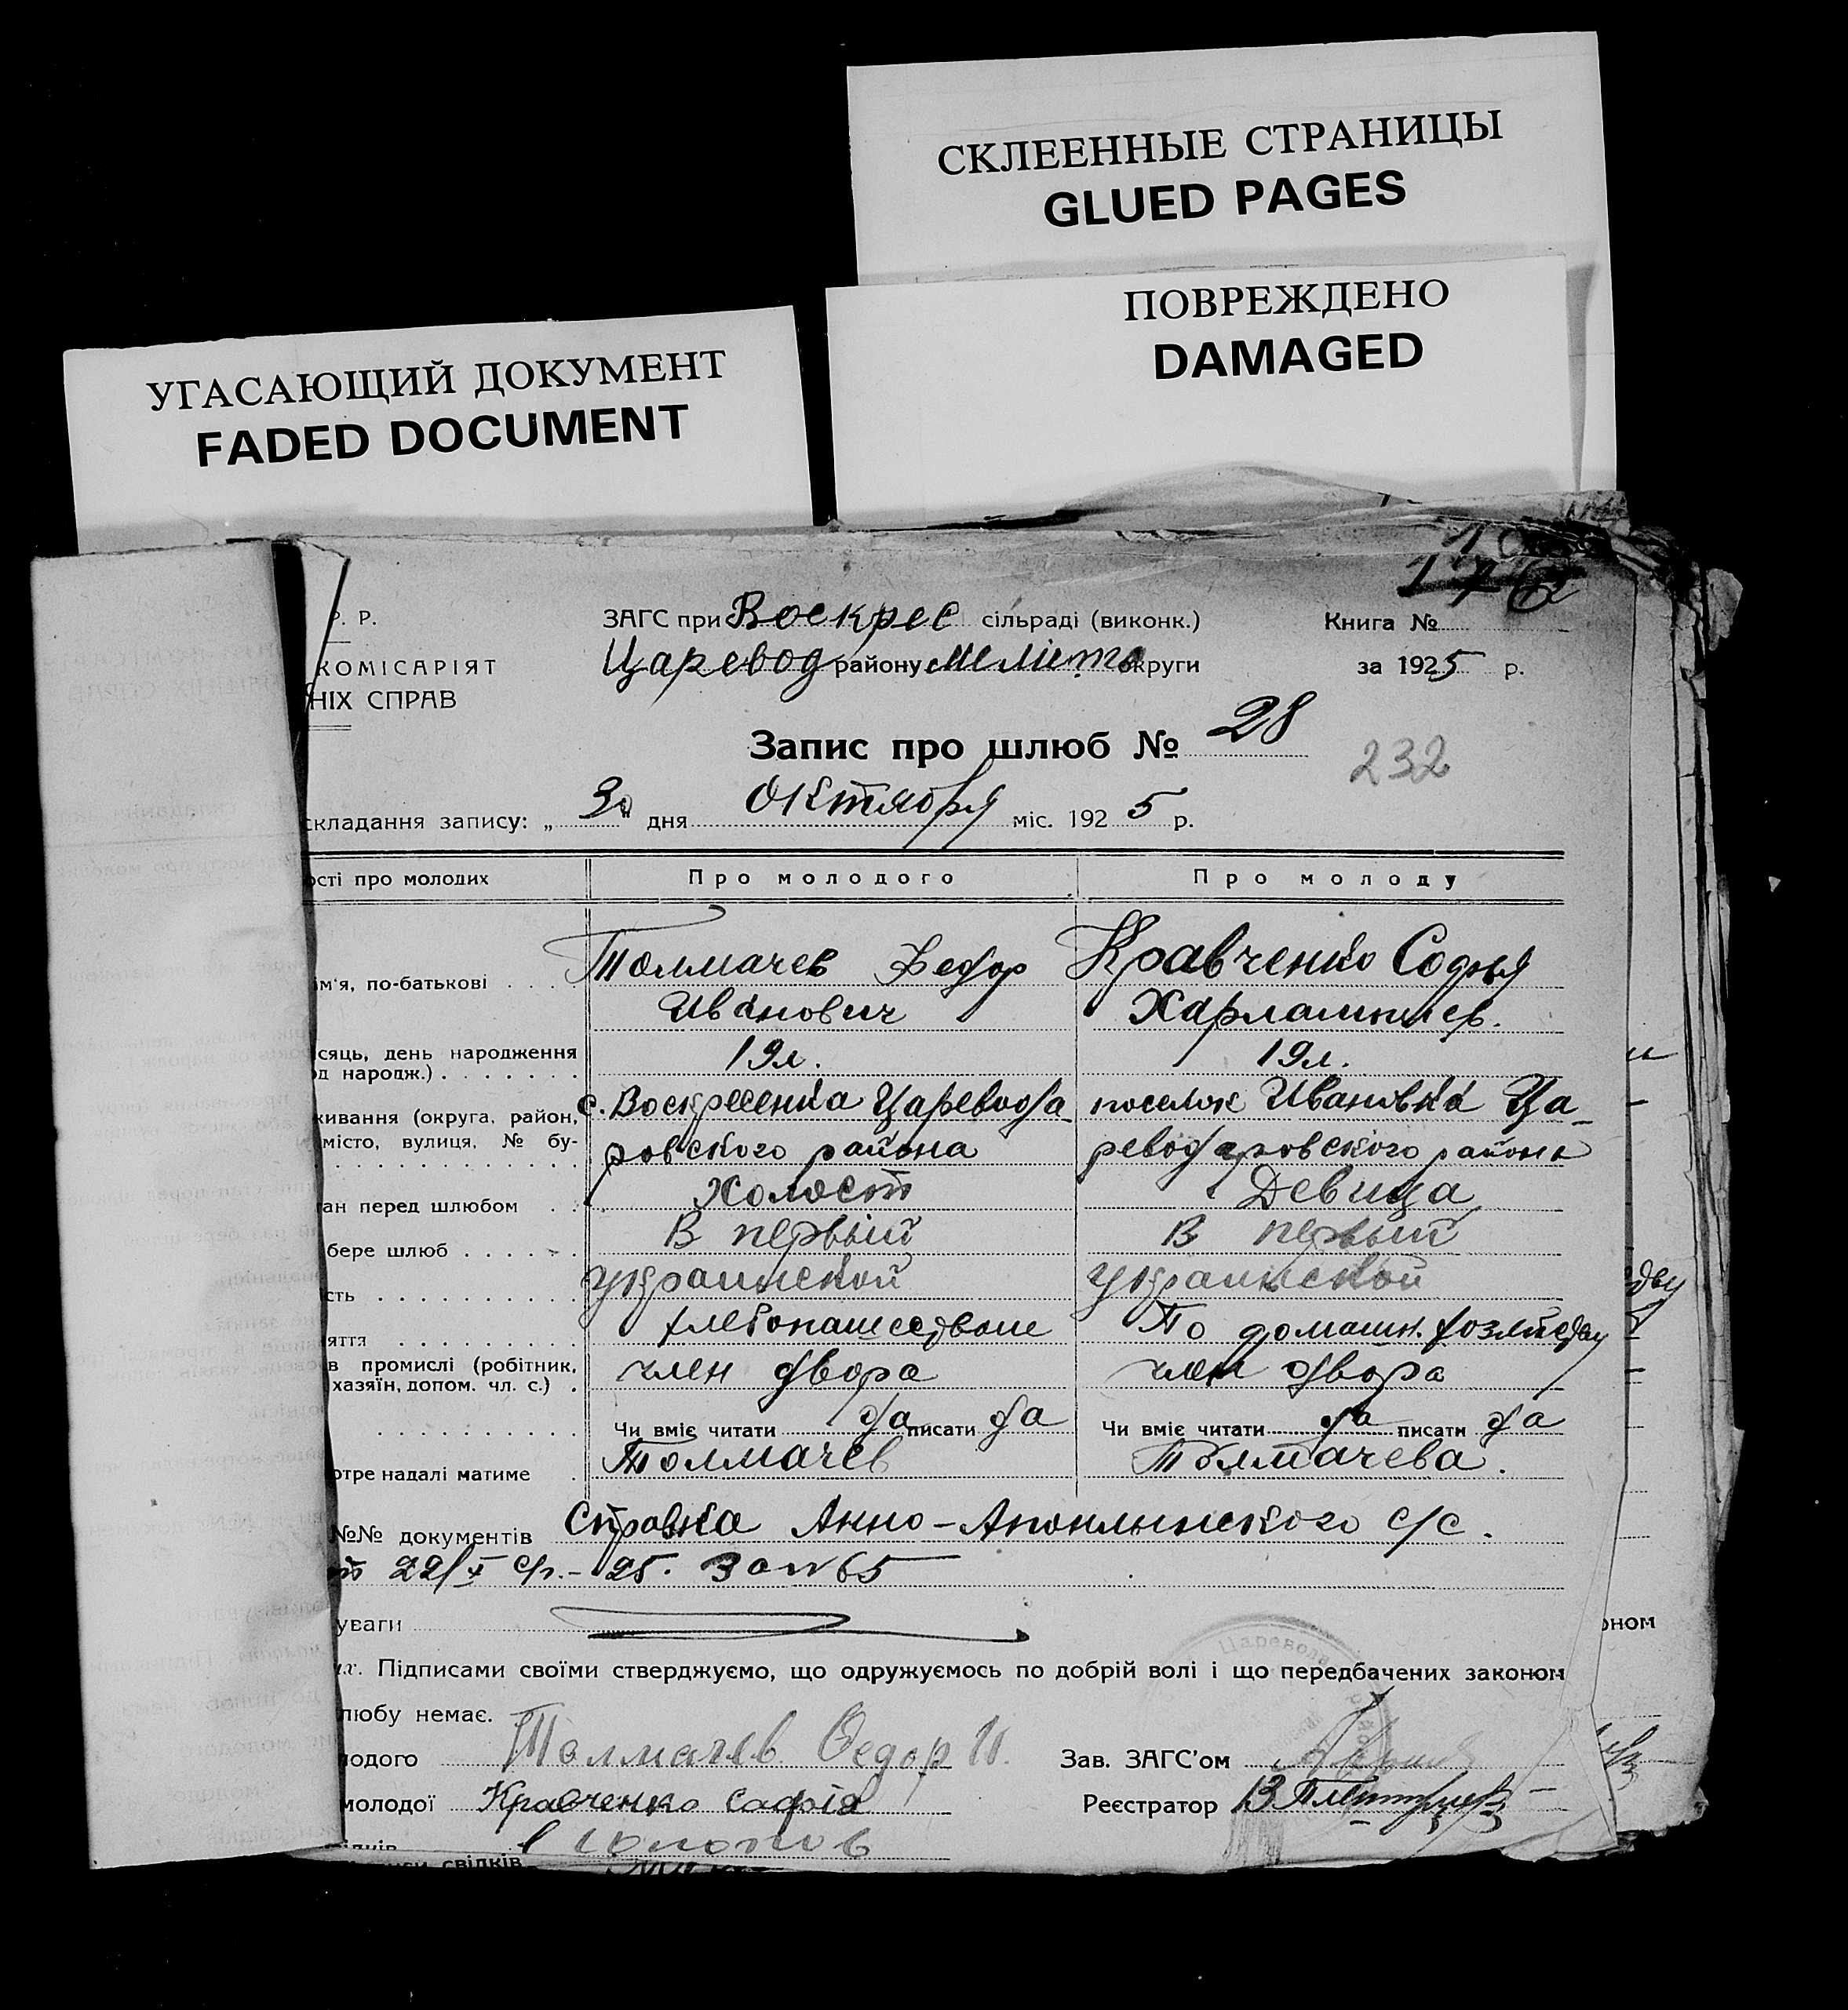 СКЛЕЕННЫЕ СТРАНИЦЫ
GLUED PAGES
ПОВРЕЖДЕНО
DAMAGED
УГАСАЮЩИЙ ДОКУМЕНТ
FADED DOCUMENT
Р. Р.
ЗАГС при Воскрес сільраді (виконк.)
Книга №
КОМІСАРІЯТ
Царевод району Меліто округи
за 1925 р.
НІХ СПРАВ
Запис про шлюб № 28
232
складання запису: „30" дня Октября міс. 1925 р.
ості про молодих
Про молодого
Про молоду
ім'я, по-батькові
Толмачев Федор
Кравченко Софья
Иванович
Харлампиев.
сяць, день народження
19л.
19л.
д народж.)
живання (округа, район,
с. Воскресенка Царевода
поселок Ивановка Ца-
місто, вулиця, № бу-
ровского района
реводаровского района
ан перед шлюбом
Холост
Девица
бере шлюб
В первый
В первый
сть
украинской
украинской
яття
хлебопашеством
По домашн. хозяйству
в промислі (робітник,
член двора
член двора
хазяїн, допом. чл. с.)
Чи вміє читати да писати да
Чи вміє читати да писати да
отре надалі матиме
Толмачев
Толмачева.
№№ документів Справка Анно- с/с.
22/X с/г.- 25. за №65
уваги
их. Підписами своїми стверджуємо, що одружуємось по добрій волі і що передбачених законом
любу немає.
лодого Толмачев Федор И.
Зав. ЗАГС'ом
молодої Кравченко Софія
Реєстратор
свідків